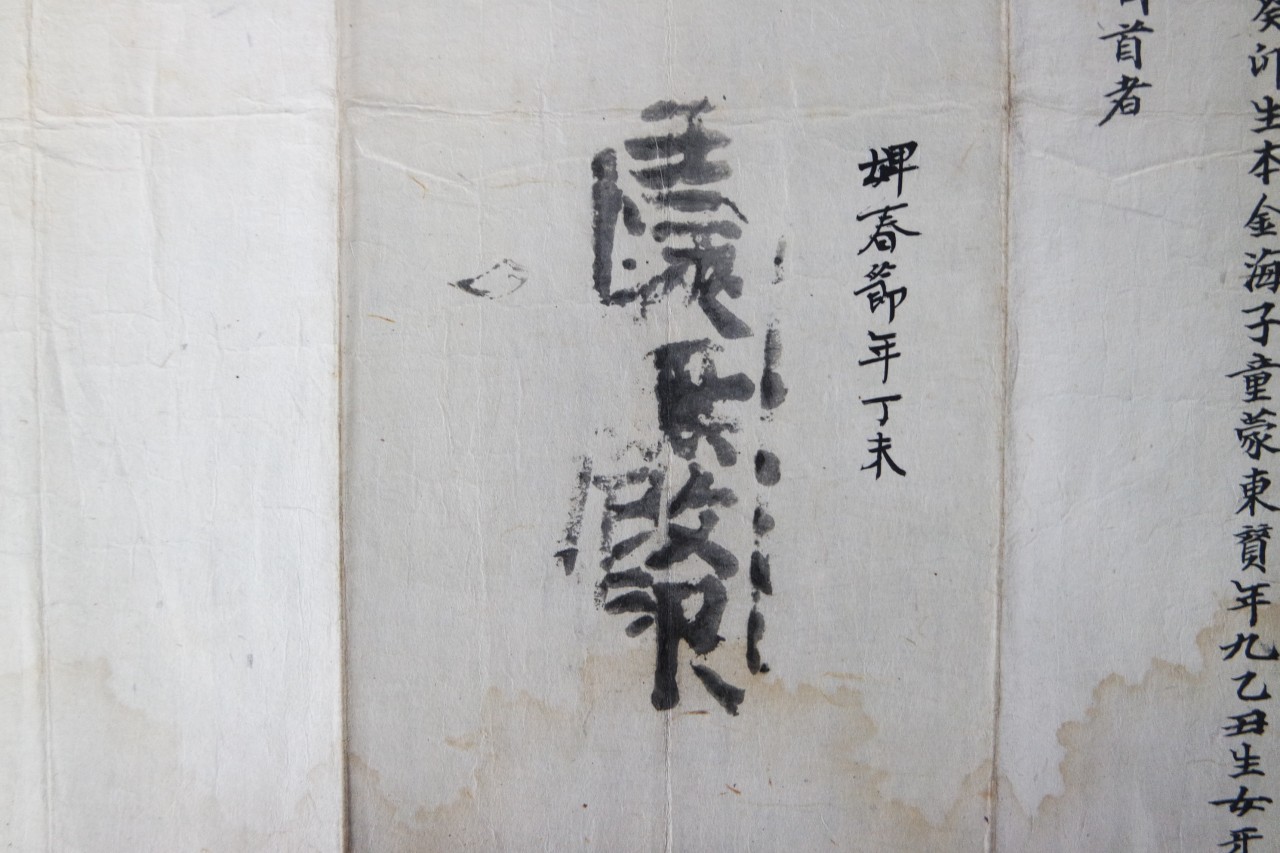 癸卯生本金海子童蒙東年九乙丑生女
首者
婢春節年丁未
改印